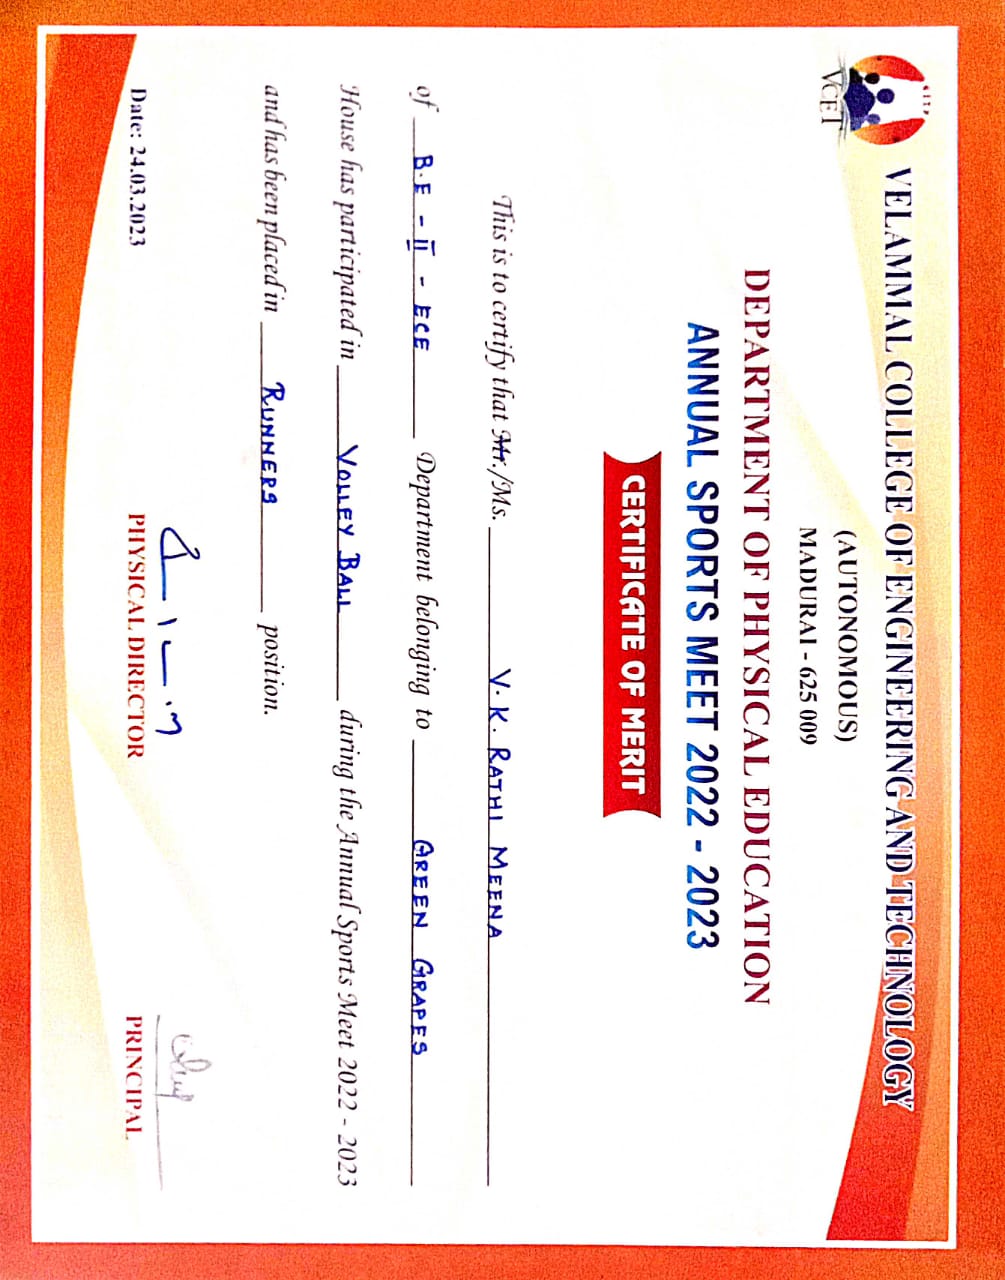 VELAMMAL COLLEGE OF ENGINEERING AND TECHNOLOGY
VCET
(AUTONOMOUS)
MADURAI - 625 009
DEPARTMENT OF PHYSICAL EDUCATION
ANNUAL SPORTS MEET 2022 - 2023
CERTIFICATE OF MERIT
This is to certify that Mr./Ms. V. K. RATHI MEENA
of B.E - II - ECE Department belonging to GREEN GRAPES
House has participated in VOLLEY BALL during the Annual Sports Meet 2022 - 2023
and has been placed in RUNNERS position.
Date: 24.03.2023 PHYSICAL DIRECTOR PRINCIPAL